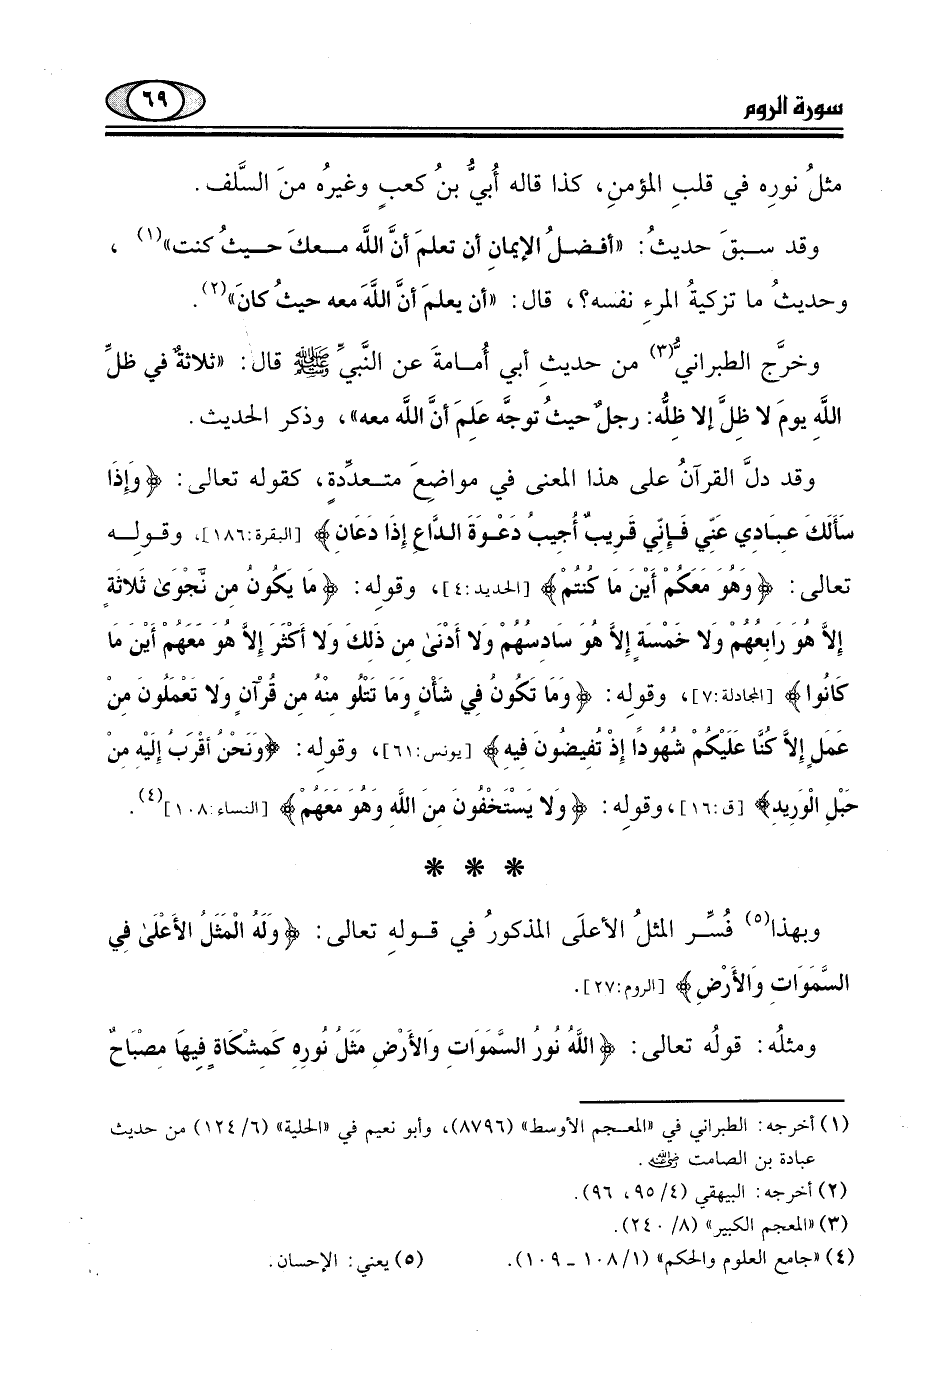 سورة الروم ٦٩
مثلُ نورِه في قلبِ المؤمنِ، كذا قاله أُبيُّ بنُ كعبٍ وغيرُه منَ السَّلف.
وقد سبقَ حديثُ: «أفضلُ الإيمانِ أن تعلمَ أنَّ اللَّه معكَ حيثُ كنت»(١)،
وحديثُ ما تزكيةُ المرءِ نفسَه؟، قال: «أن يعلمَ أنَّ اللَّهَ معه حيثُ كانَ»(٢).
وخرَّج الطبرانيُّ(٣) من حديثِ أبي أُمامةَ عن النَّبيِّ ﷺ قال: «ثلاثةٌ في ظلِّ
اللَّهِ يومَ لا ظلَّ إلا ظلُّه: رجلٌ حيثُ توجَّه عَلِمَ أنَّ اللَّه معه»، وذكر الحديث.
وقد دلَّ القرآنُ على هذا المعنى في مواضعَ متعدِّدةٍ، كقوله تعالى: ﴿وَإِذَا
سَأَلَكَ عِبَادِي عَنِّي فَإِنِّي قَرِيبٌ أُجِيبُ دَعْوَةَ الدَّاعِ إِذَا دَعَانِ﴾ [البقرة:١٨٦]، وقوله
تعالى: ﴿وَهُوَ مَعَكُمْ أَيْنَ مَا كُنتُمْ﴾ [الحديد:٤]، وقوله: ﴿مَا يَكُونُ مِن نَّجْوَىٰ ثَلاثَةٍ
إِلاَّ هُوَ رَابِعُهُمْ وَلا خَمْسَةٍ إِلاَّ هُوَ سَادِسُهُمْ وَلا أَدْنَىٰ مِن ذَلِكَ وَلا أَكْثَرَ إِلاَّ هُوَ مَعَهُمْ أَيْنَ مَا
كَانُوا﴾ [المجادلة:٧]، وقوله: ﴿وَمَا تَكُونُ فِي شَأْنٍ وَمَا تَتْلُو مِنْهُ مِن قُرْآنٍ وَلا تَعْمَلُونَ مِنْ
عَمَلٍ إِلاَّ كُنَّا عَلَيْكُمْ شُهُودًا إِذْ تُفِيضُونَ فِيهِ﴾ [يونس:٦١]، وقوله: ﴿وَنَحْنُ أَقْرَبُ إِلَيْهِ مِنْ
حَبْلِ الْوَرِيدِ﴾ [ق:١٦]، وقوله: ﴿وَلا يَسْتَخْفُونَ مِنَ اللَّهِ وَهُوَ مَعَهُمْ﴾ [النساء:١٠٨](٤).
* * *
وبهذا(٥) فُسِّر المثلُ الأعلَى المذكورُ في قوله تعالى: ﴿وَلَهُ الْمَثَلُ الأَعْلَىٰ فِي
السَّمَوَاتِ وَالأَرْضِ﴾ [الروم:٢٧].
ومثلُه: قولُه تعالى: ﴿اللَّهُ نُورُ السَّمَوَاتِ وَالأَرْضِ مَثَلُ نُورِهِ كَمِشْكَاةٍ فِيهَا مِصْبَاحٌ
(١) أخرجه: الطبراني في «المعجم الأوسط» (٨٧٩٦)، وأبو نعيم في «الحلية» (٦/ ١٢٤) من حديث
عبادة بن الصامت رضي الله عنه.
(٢) أخرجه: البيهقي (٤/ ٩٥، ٩٦).
(٣) «المعجم الكبير» (٨/ ٢٤٠).
(٤) «جامع العلوم والحكم» (١/ ١٠٨ ـ ١٠٩). (٥) يعني: الإحسان.